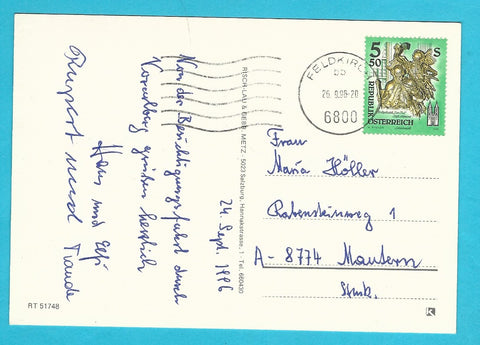 24. Sept. 1996
Von der Besichtigungsfahrt durch
Vorarlberg grüßen herzlich
Hans und Elfi
Rupert und Traude
RISCH-LAU & GEBR. METZ · 5023 Salzburg, Hannakstrasse, 1 · Tel. 660430
RT 51748
FELDKIRCH
bb
26.9.96-20
6800
5
50
S
REPUBLIK
ÖSTERREICH
Frau
Maria Höller
Rabensteinweg 1
A - 8774 Mautern
Stmk.
K